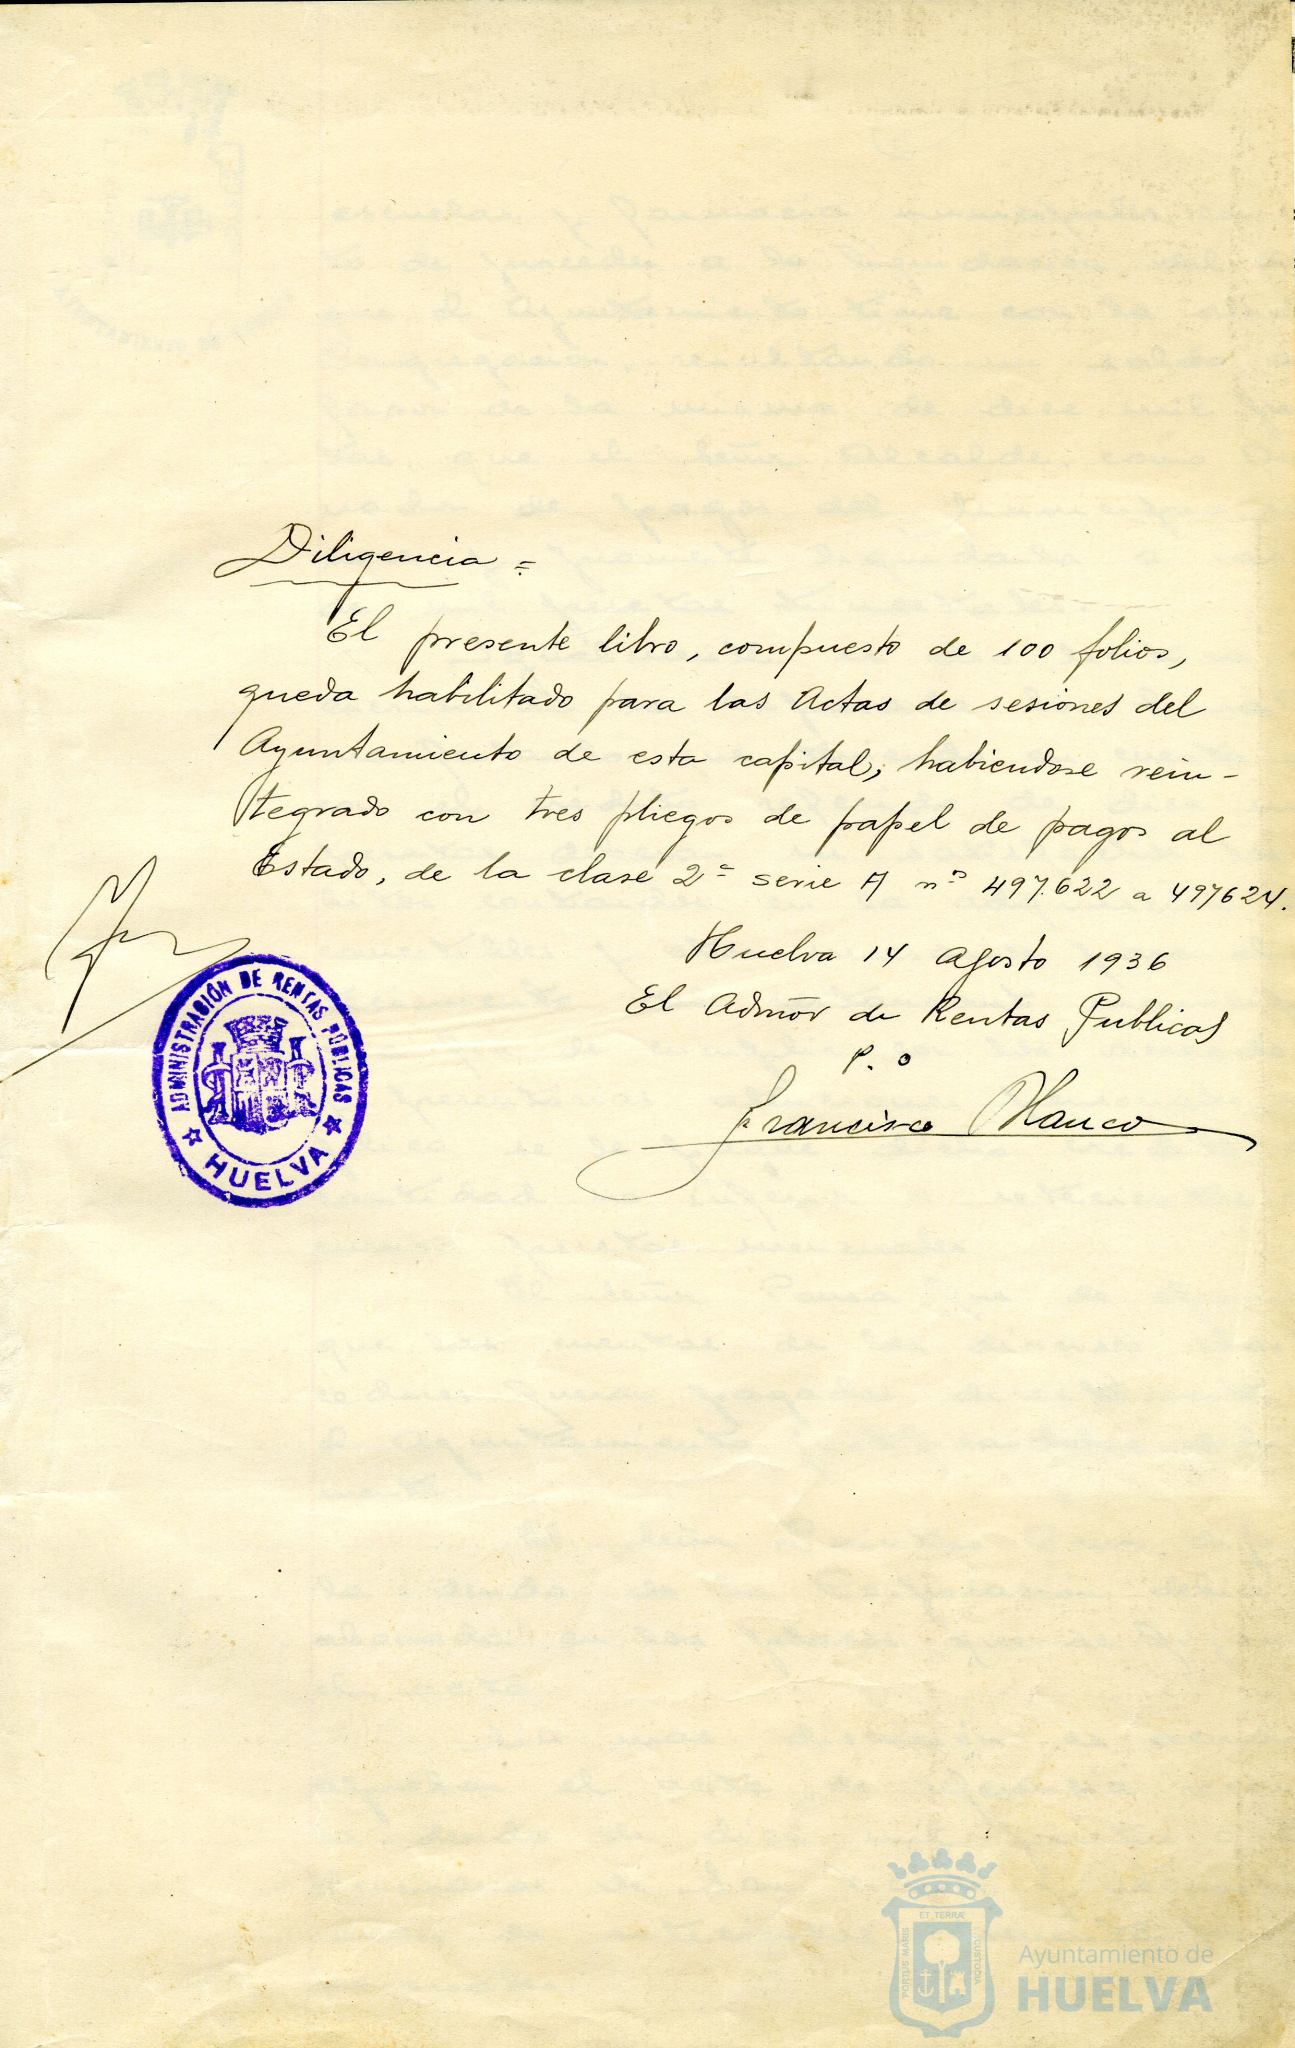 Diligencia =
El presente libro, compuesto de 100 folios,
queda habilitado para las Actas de sesiones del
Ayuntamiento de esta capital, habiendose rein-
tegrado con tres pliegos de papel de pagos al
Estado, de la clase 2ª serie A nº 497.622 a 497624.
Huelva 14 Agosto 1936
El Admor de Rentas Publicas
P. O
Francisco
ADMINISTRACIÓN DE RENTAS PÚBLICAS
HUELVA
PORTUS MARIS ET TERRÆ CUSTODIA
Ayuntamiento de
HUELVA